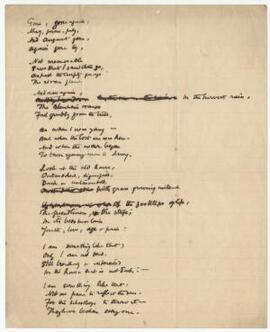 Gone, gone again,
May, June, July,
And August gone,
Again gone by,
Not memorable
Save that I saw them go,
As past the empty quays
The rivers flow.
And now again,
In the harvest rain,
The Blenheim oranges
Fall grubby from the trees,
As when I was young —
And when the lost one was here —
And when the war began
To turn young men to dung.
Look at the old house,
Outmoded, dignified,
Dark and untenanted,
With grass growing instead
of the footsteps of life,
The friendliness, the strife;
In its beds have lain
Youth, love, age & pain:
I am something like that;
Only I am not dead,
Still breathing & interested
In the house that is not dark: —
I am something like that:
Not one pane to reflect the sun,
For the schoolboys to throw at —
They have broken every one.